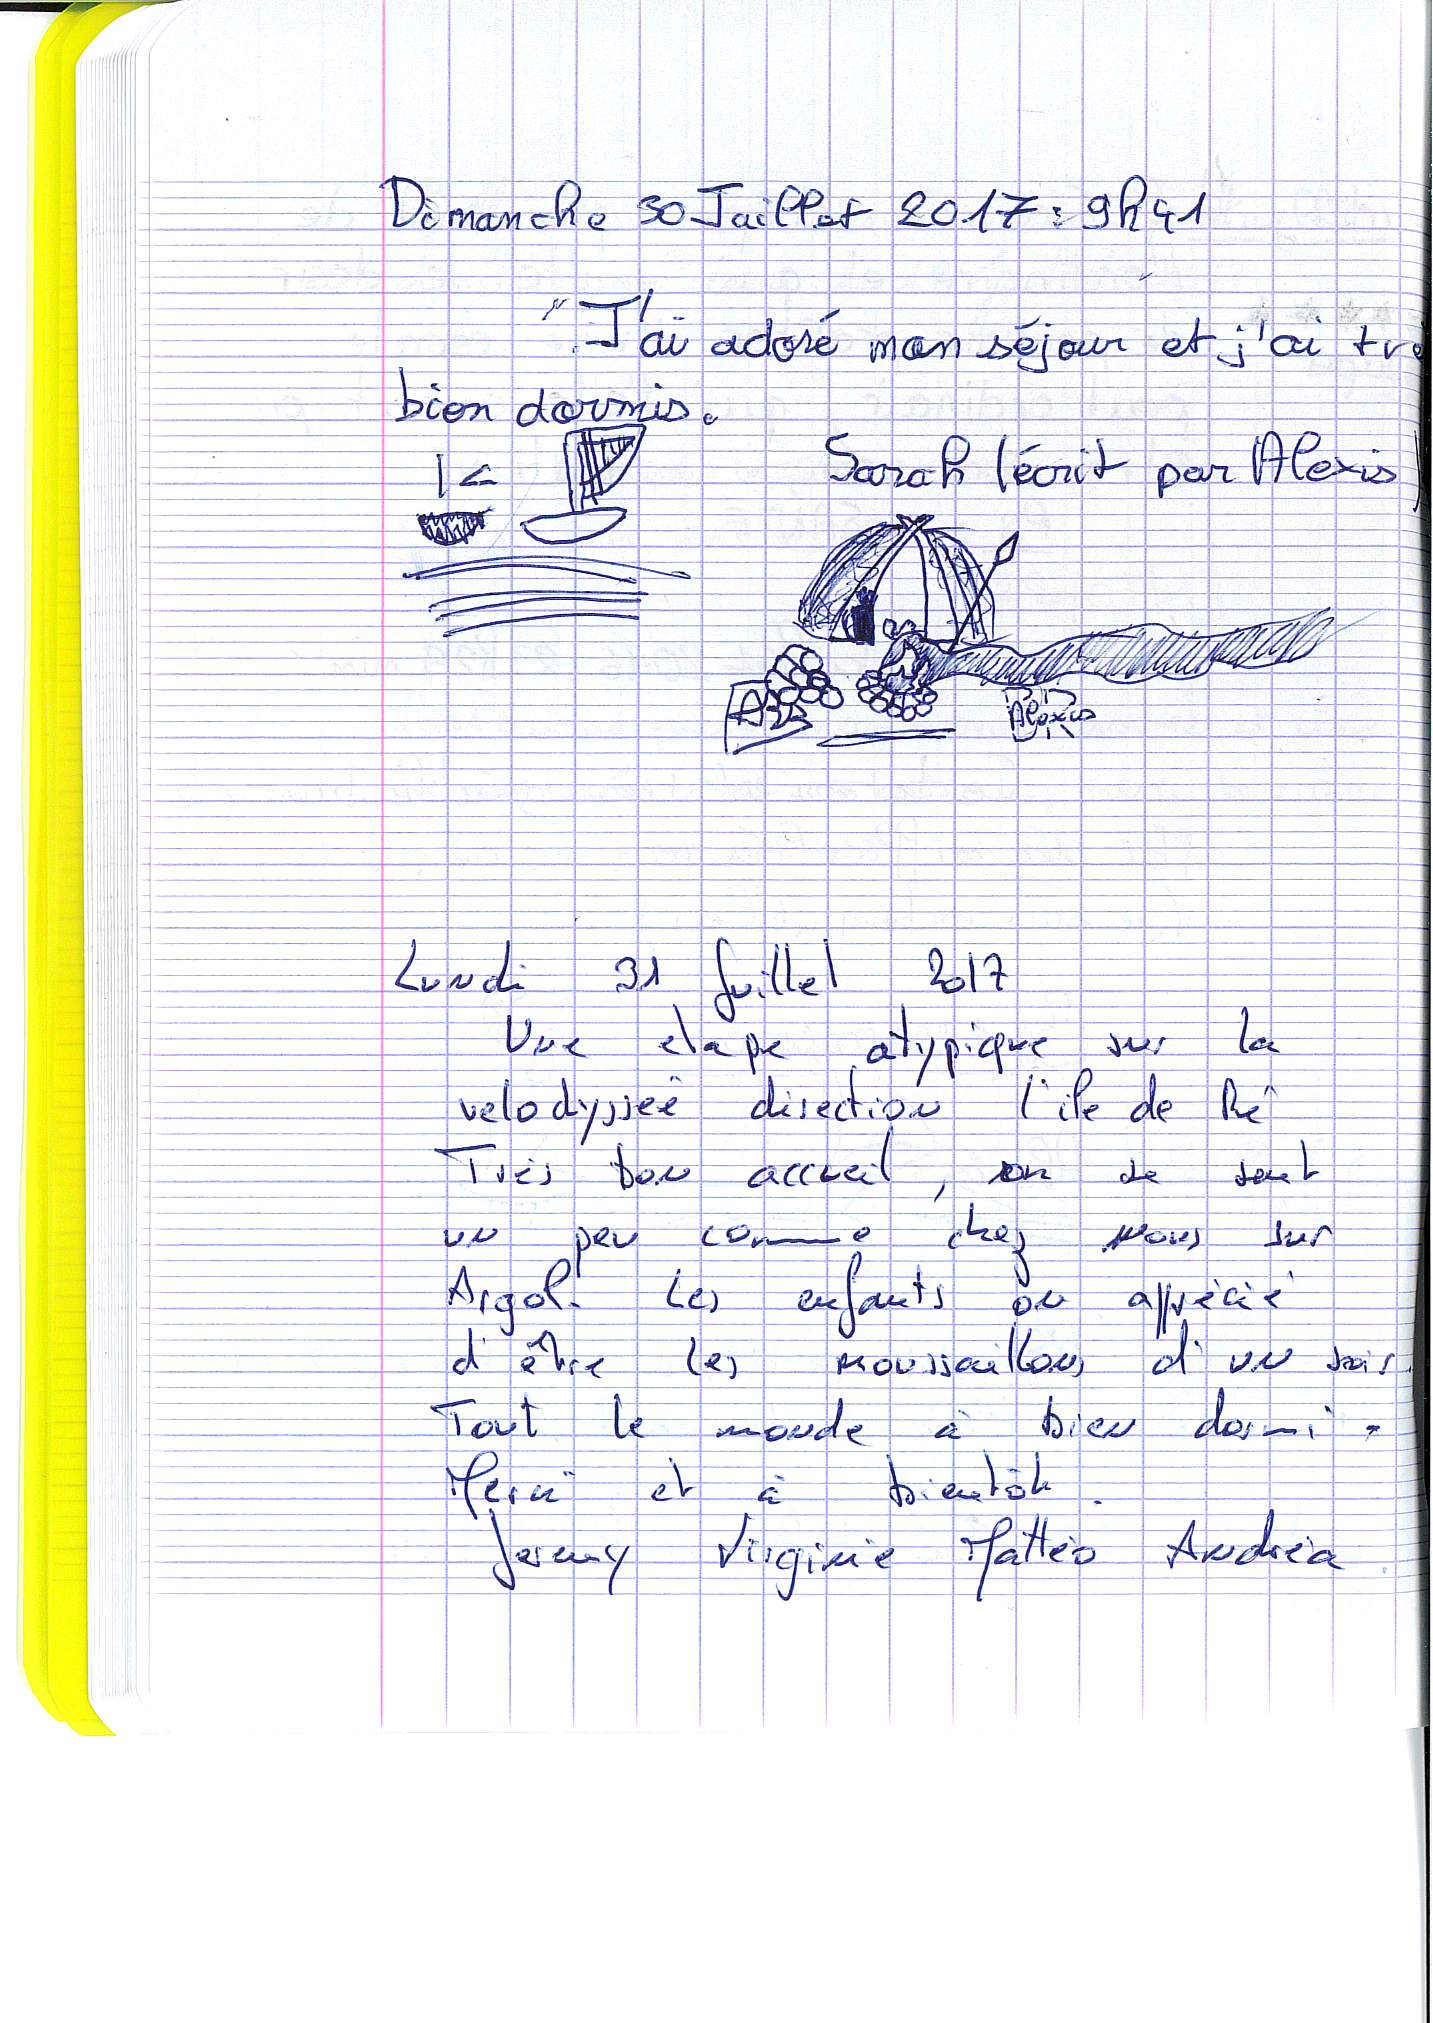 Dimanche 30 Juillet 2017 : 9h41
"J'ai adoré mon séjour et j'ai tre
bien dormis.
Sarah (écrit par Alexis)
Alexis
Lundi 31 Juillet 2017
Une etape atypique sur la
velodysseé direction l'ile de Ré
Très bon accueil, on se sent
un peu comme chez nous sur
Argol. Les enfants on apprécié
d'être les moussaillons d'un soir.
Tout le monde à bien dormi.
Merci et à bientôt.
Jeremy Virginie Mattéo Andréa